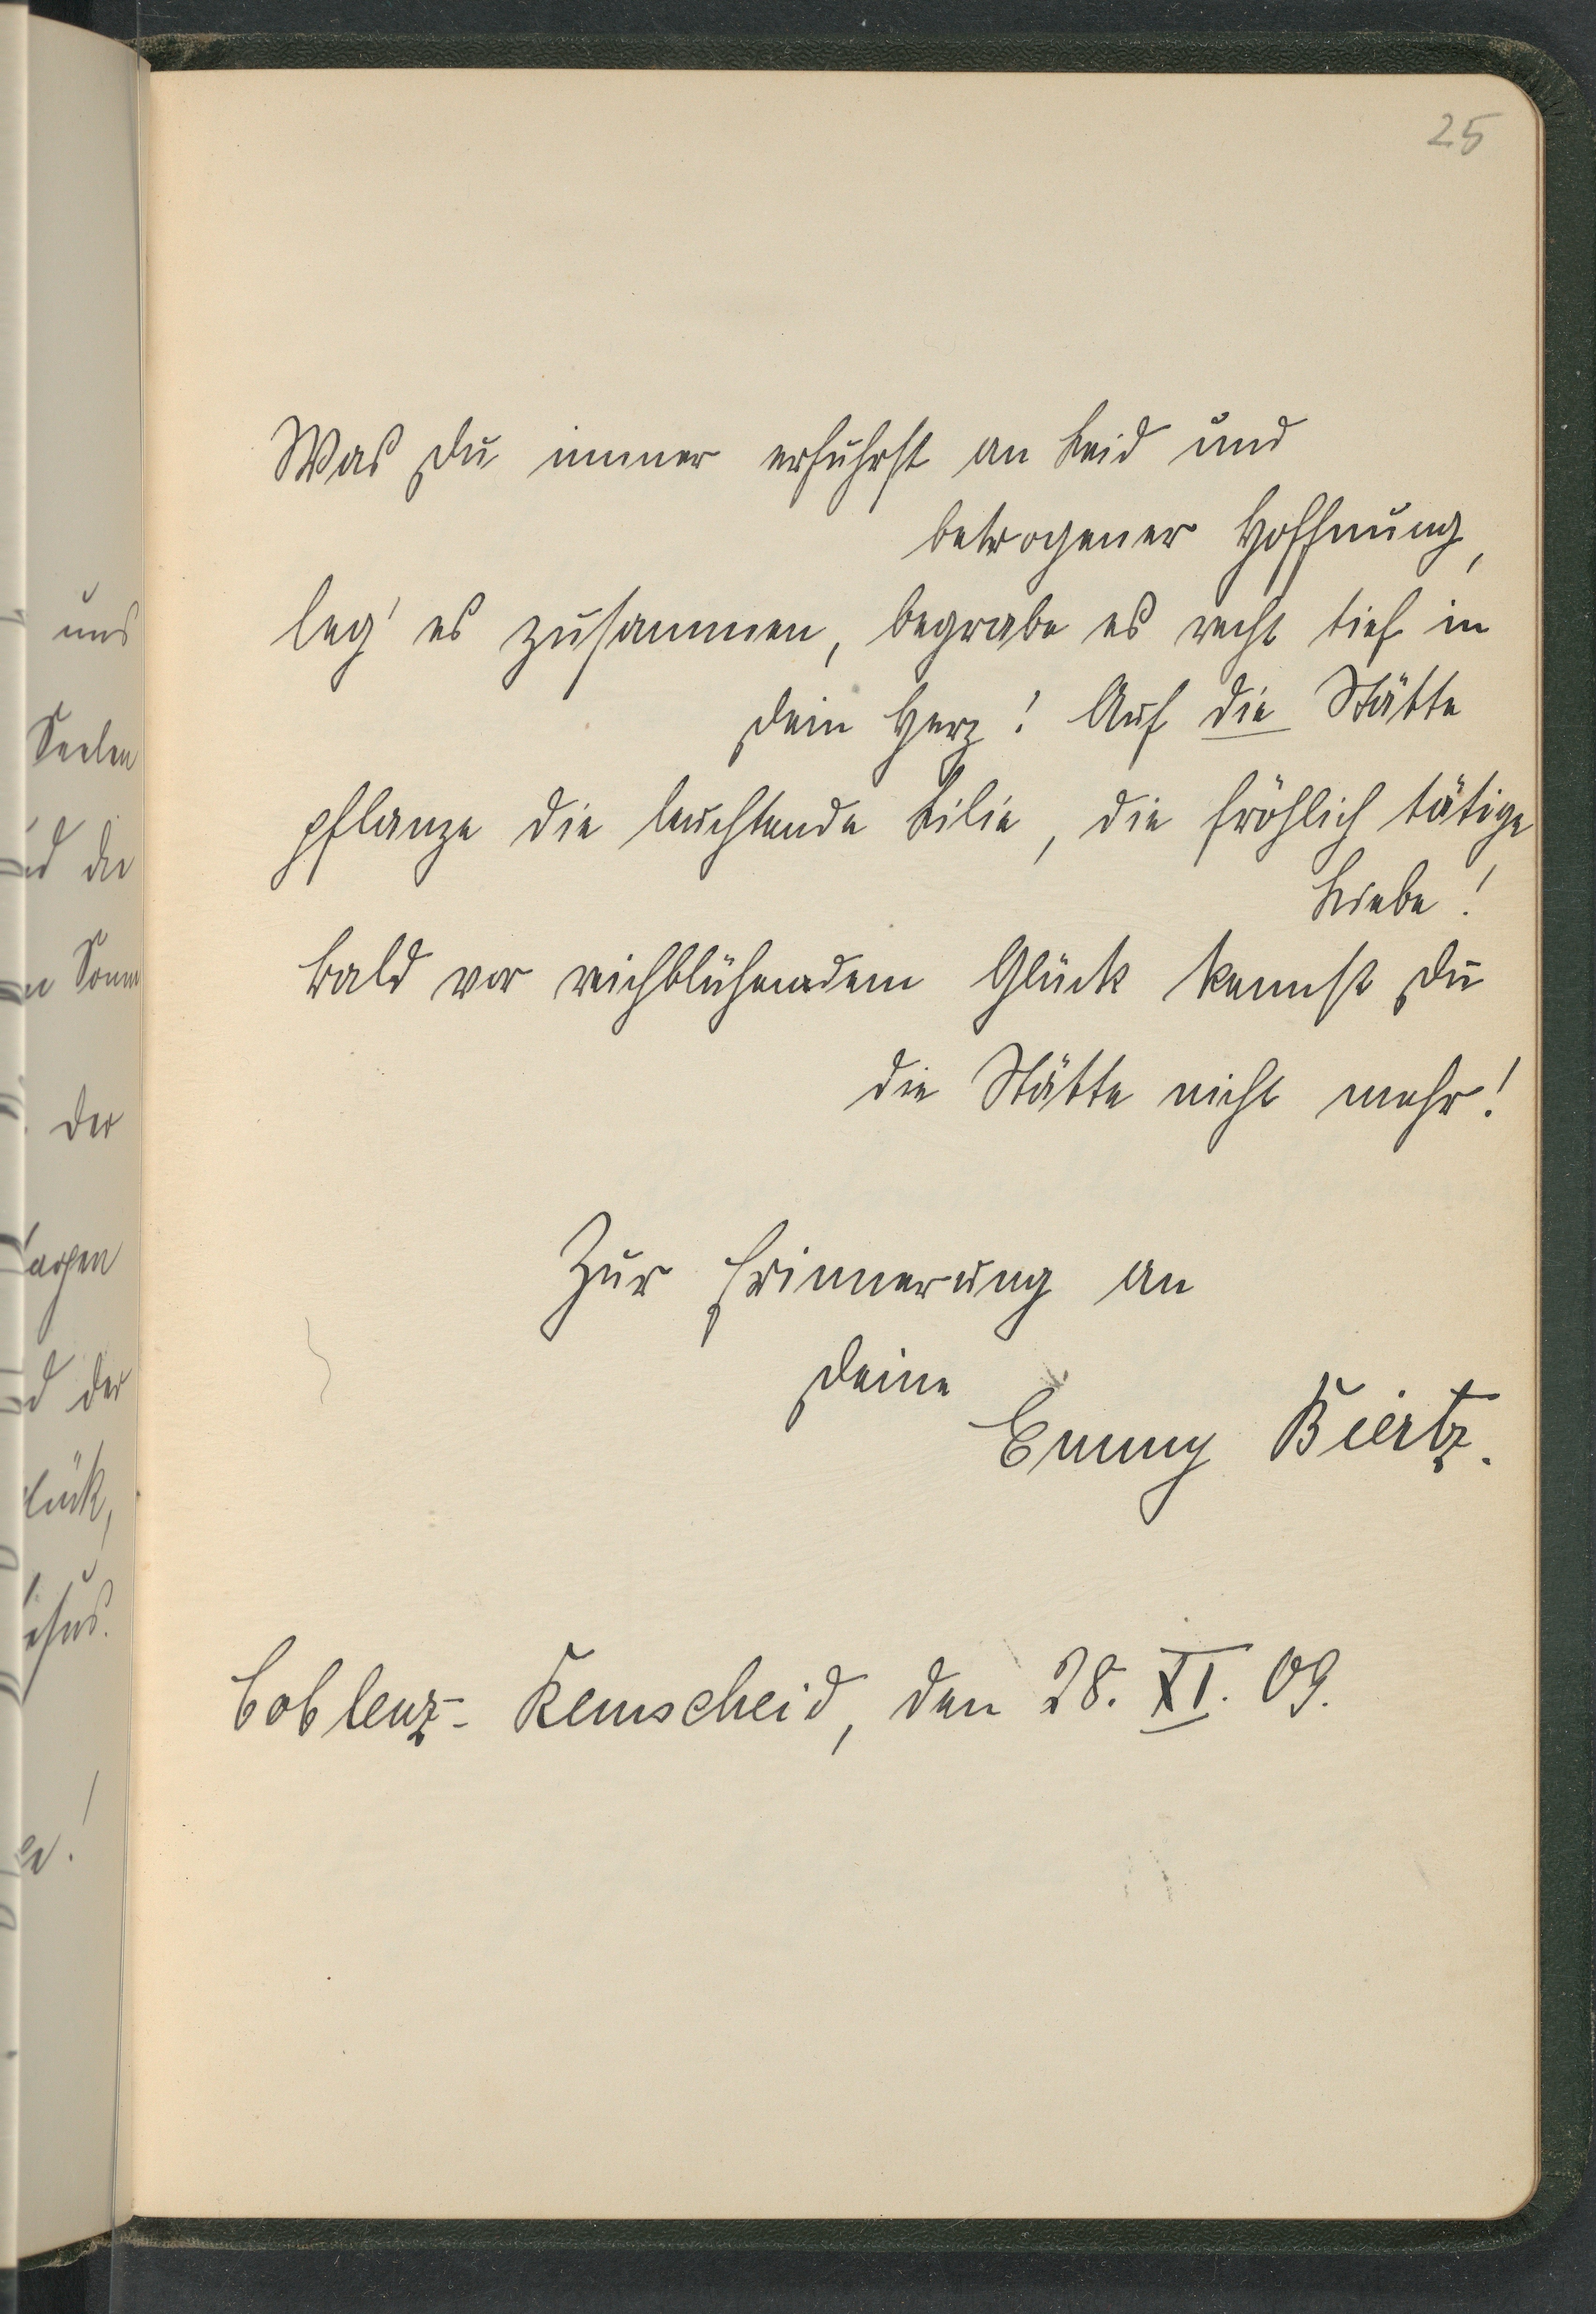 25
Was Du immer erfuhrst an Leid und
betrogener Hoffnung,
leg' es zusammen, begrabe es recht tief in
Dein Herz! Auf die Stätte
pflanze die leuchtende Lilie, die fröhlich tätige
Liebe!
bald vor reichblühendem Glück kennst Du
die Stätte nicht mehr!
Zur Erinnerung an
Deine
Emmy Biertz.
Coblenz-Remscheid, den 28. XI. 09.
uns
Seelen
der
Sonn
der
d der